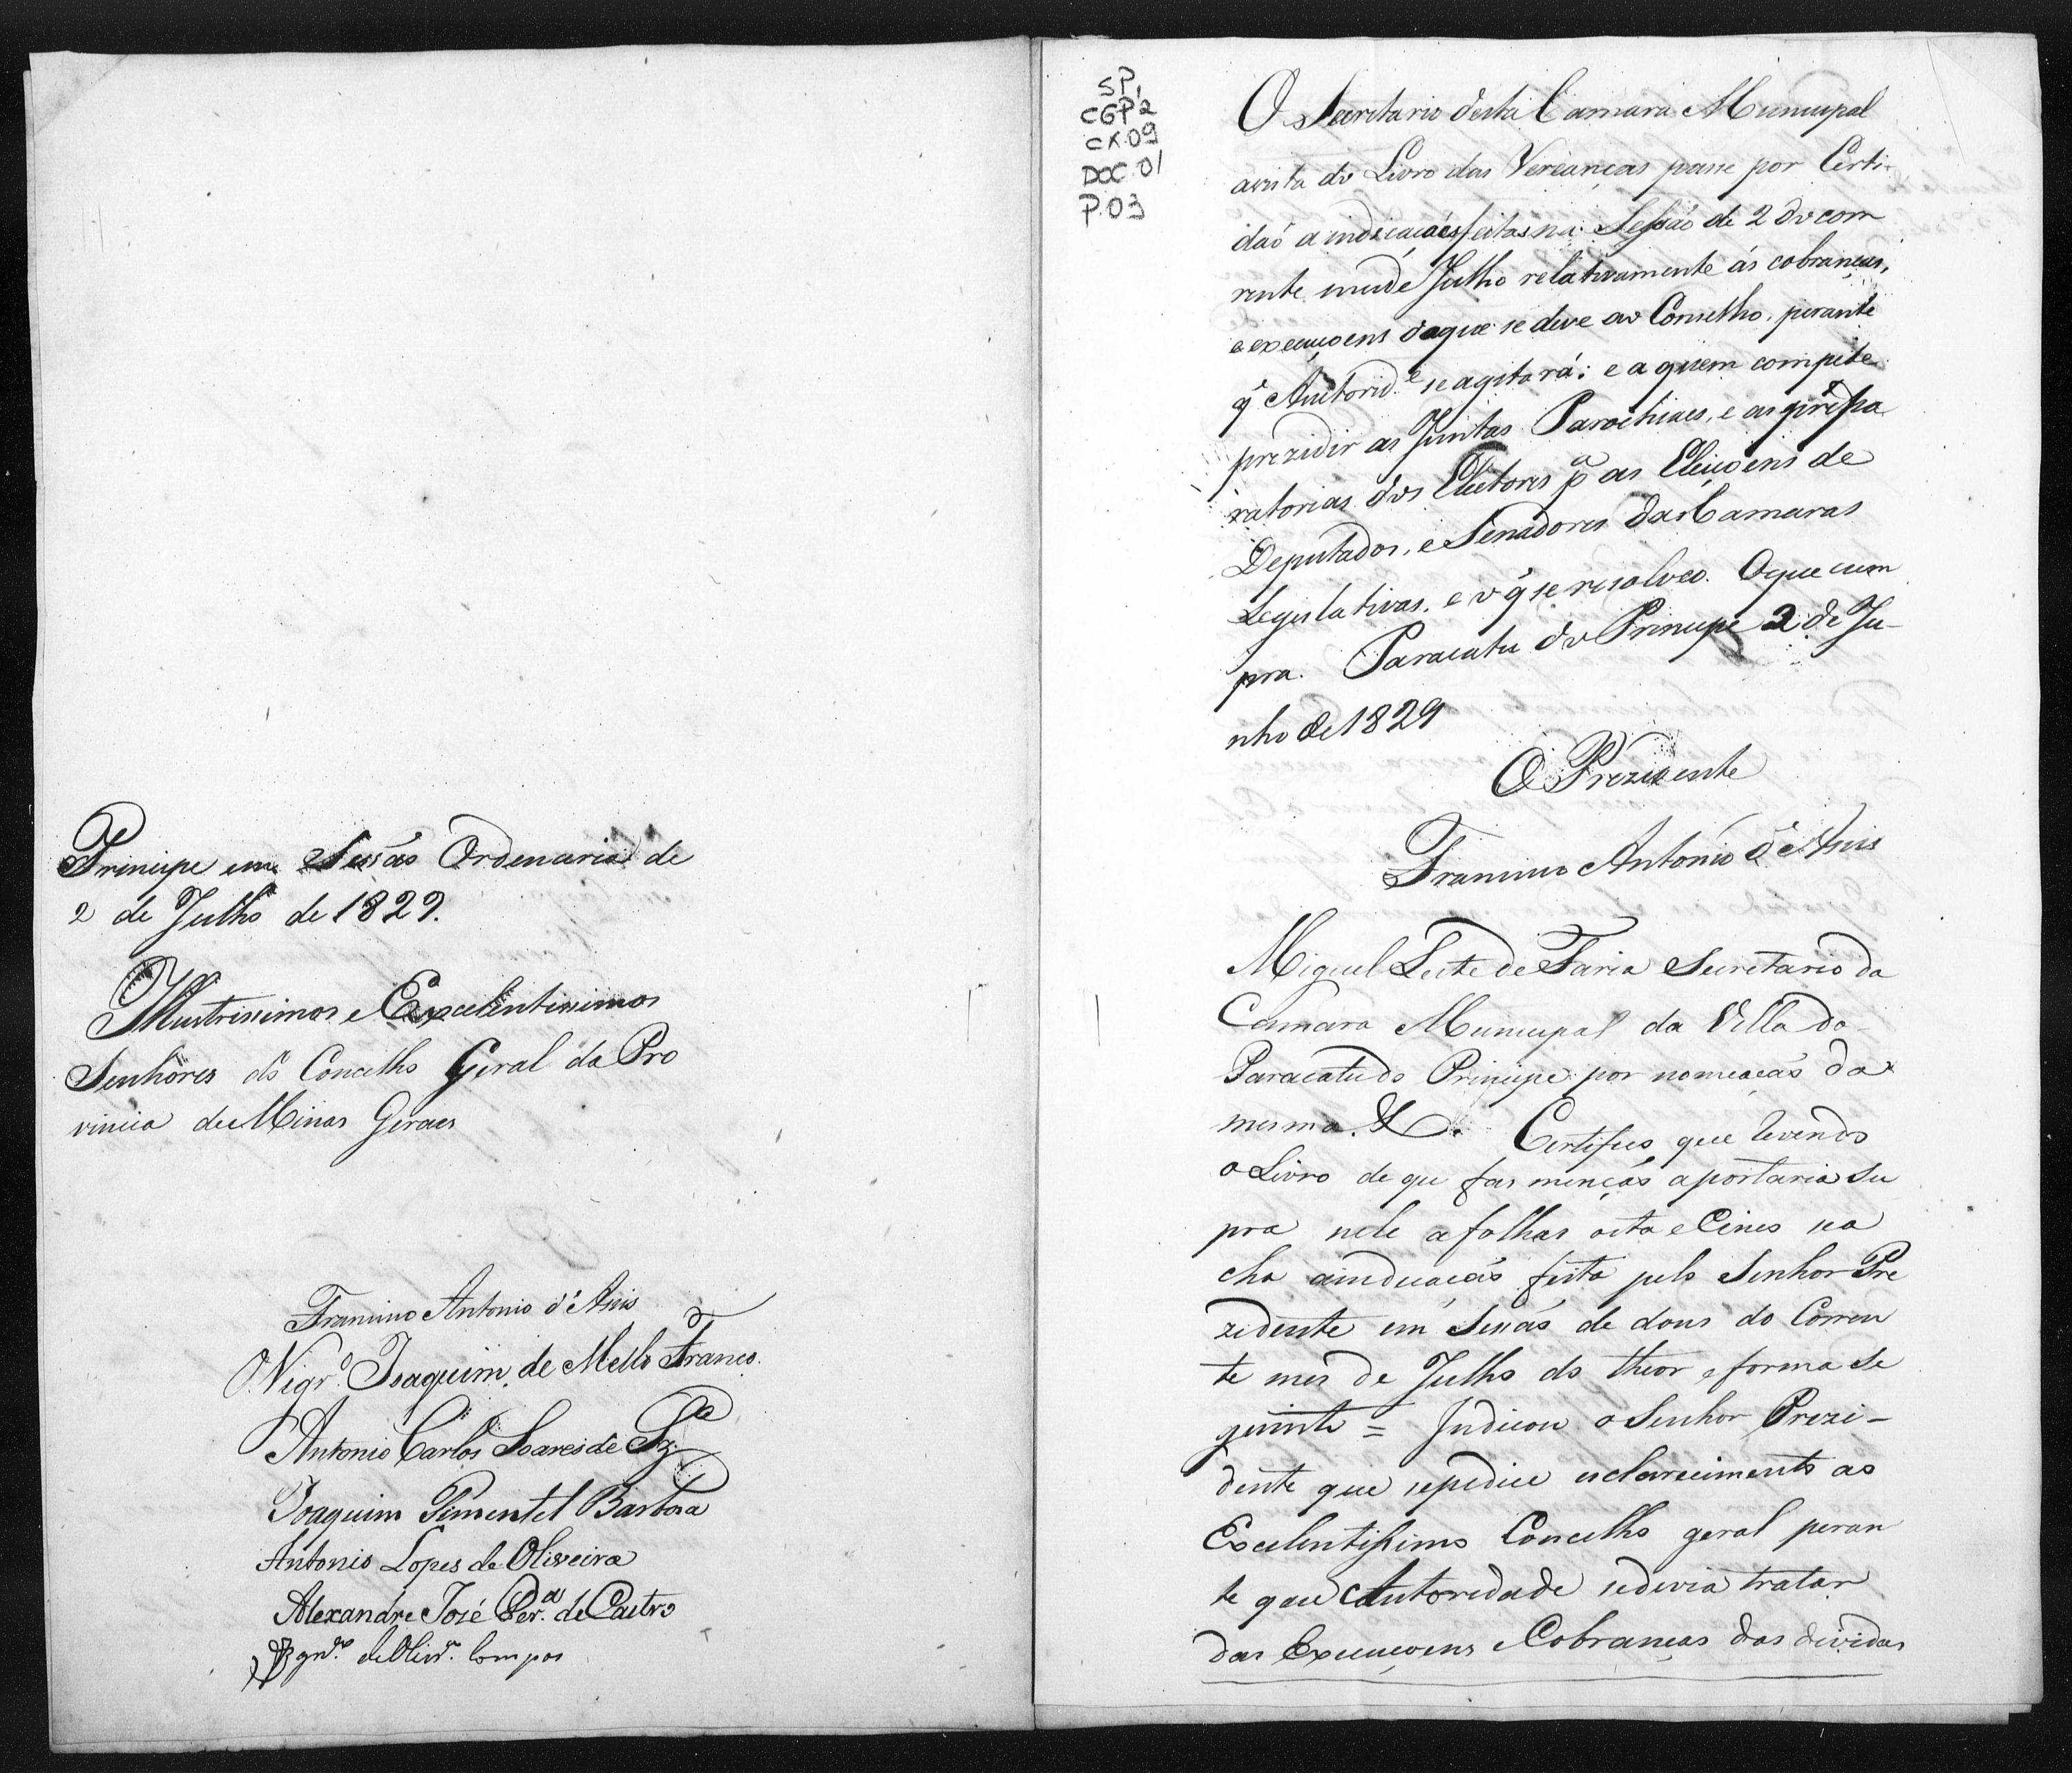 Principe em Sessão Ordenaria de
2 de Julho de 1829.
Illustrissimos e Excelentissimos
Senhores do Concelho Geral da Pro
vincia de Minas Geraes
Antonio d'Assis
O Vigr.º Joaquim de Mello Franco.
Antonio Carlos Soares de Sz.ª
Joaquim Pimentel Barboza
Antonio Lopes de Oliveira
Alexandre José Per.ª de Castro
de Olivr.ª Campos
SP,
CGP2
CX.09
DOC.01
P.03
O Secretario desta Camara Municipal
avista do Livro das Vereanças passe por Certi-
daõ a indicaçaões feitas na Sessaõ de 2 do cor
rente mes de Julho relativamente ás cobranças,
e execuçoens do que se deve ao Conselho, perante
q̃ Autorid.e se agitará; e a quem compete
prezidir as Juntas Parochiaes, e as prepa
ratorias dos Eleitores p.a as Eleiçoens de
Deputados, e Senadores das Camaras
Legislativas, e o q̃ se resolveo. O que cum
pra. Paracatu do Principe 2 de Ju-
nho de 1829
O Prezidente
Antonio d'Assis
Miguel Leite de Faria Secretario da
Camara Municipal da Villa do
Paracatu do Principe por nomeacaõ da
mesma &. Certefico que revendo
o Livro de que fas mençaõ a portaria Su
pra nele a folhas oito e Cinco se a
cha aindicaçaõ feita pelo Senhor Pre
zidente em Sessaõ de dous do Corren
te mes de Julho do theor e forma Se
guinte = Indicou o Senhor Prezi-
dente que se pedice esclarecimento ao
Excelentissimo Concelho geral peran
te que Autoridade se devia tratar
das Execuçoens e Cobrancas das dividas